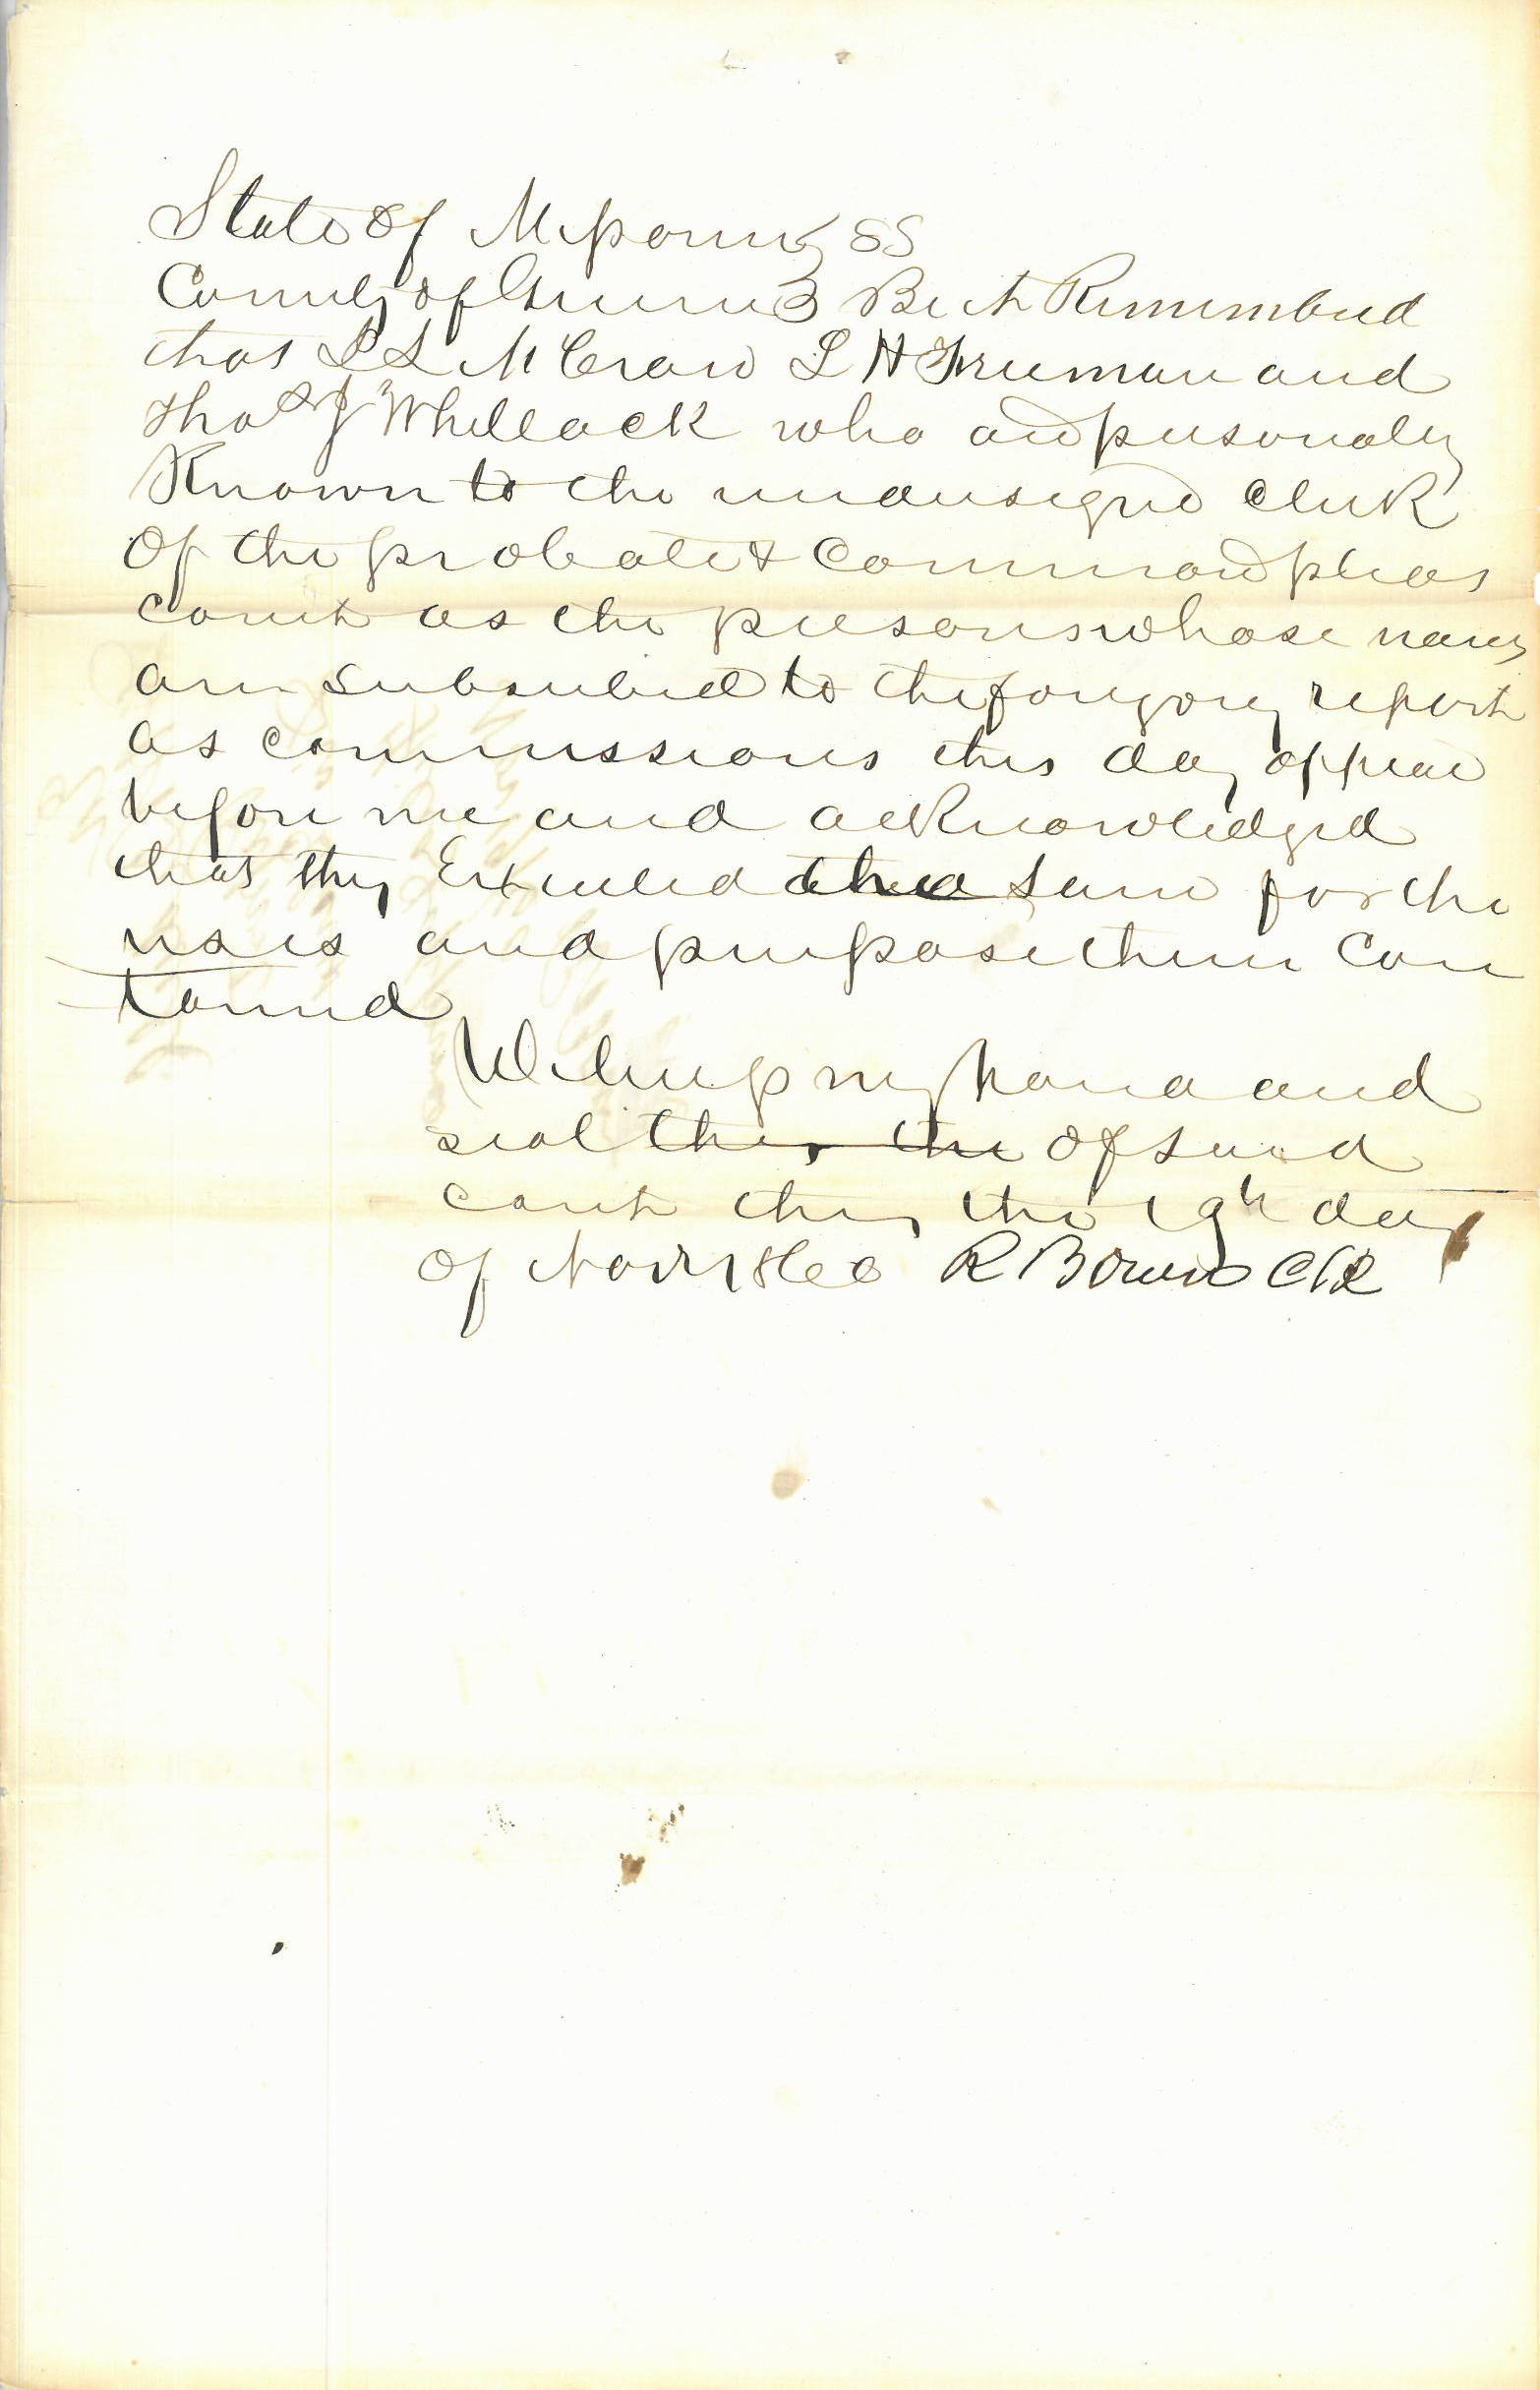 State of Missouri } SS
County of Greene } Be it Rememberd
that L L McCraw L H Freeman and
Thos J Whitlock who are personaly
Known to the undersigned Clerk
Of the probate & Common pleas
court as the persons whose names
are subscribed to the forgoing report
as commissioners this day appeare
before me and acknowledged
that they Executed the same for the
uses and purpose therein Con
tained
Witness my hand and
seal this the of said
court this the 19th day
of Novr 1866 R B Owen Clk